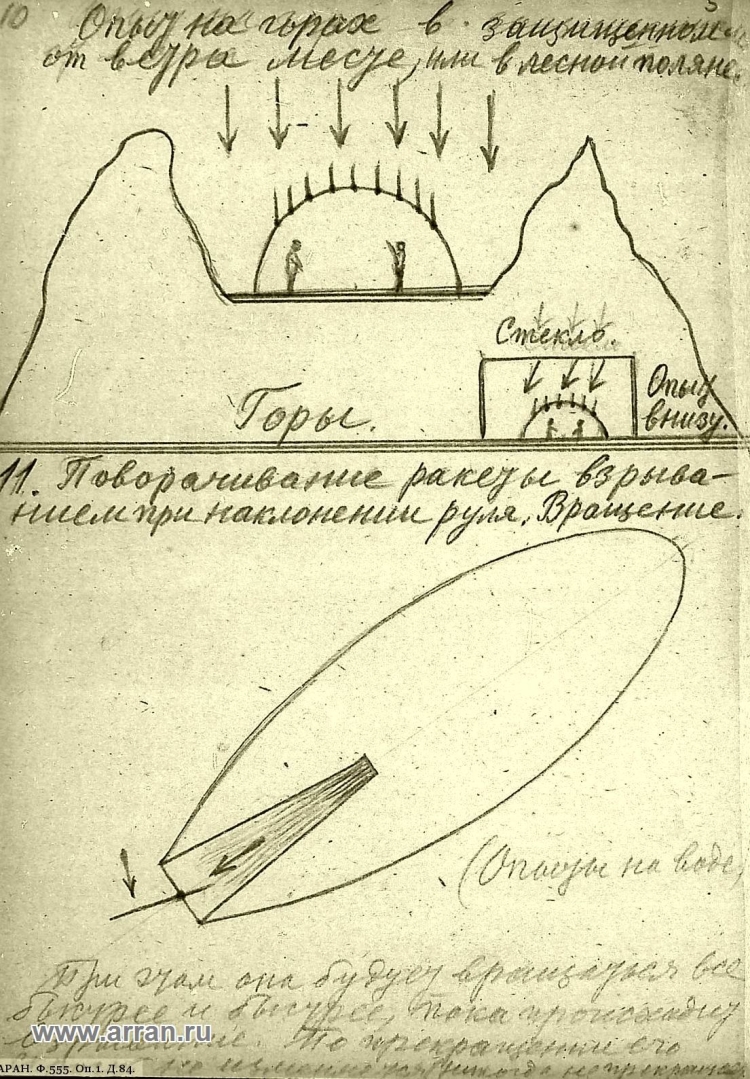 10
5
Опыт на горах в защищенном
от ветра месте, или в лесной поляне.
Стекло.
Опыт
внизу.
Горы.
11. Поворачивание ракеты взрыва-
нием при наклонении руля. Вращение.
(Опыты на воде)
При этом она будет вращаться все
быстрее и быстрее, пока происходит
По прекращении его
никогда не прекращ
www.arran.ru
АРАН. Ф.555. Оп.1. Д.84.